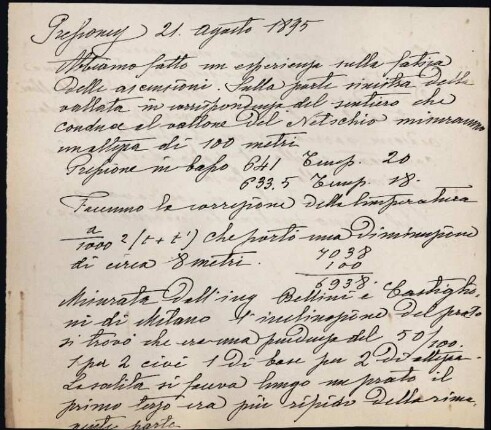 Gressoney 21. Agosto 1895
Abbiamo fatto un esperienza sulla fatica
delle ascensioni. Sulla parte sinistra della
vallata in corrispondenza del sentiero che
conduce al vallone del Netschio misurammo
un altezza di 100 metri
Pressione in basso 641 Temp. 20
633.5 Temp. 18.
Facemmo la correzione della temperatura
a/1000 2(t+t') che portò una diminuzione
di circa 8 metri.
7038
100
6938.
Misurata dall'ing Bellini e Castiglio-
ni di Milano l'inclinazione del prato
si trovò che era una pendenza del 50/100.
1 per 2 cioè 1 di base per 2 di altezza.
La salita si faceva lungo un prato il
primo terzo era più ripido della rima-
nente parte.